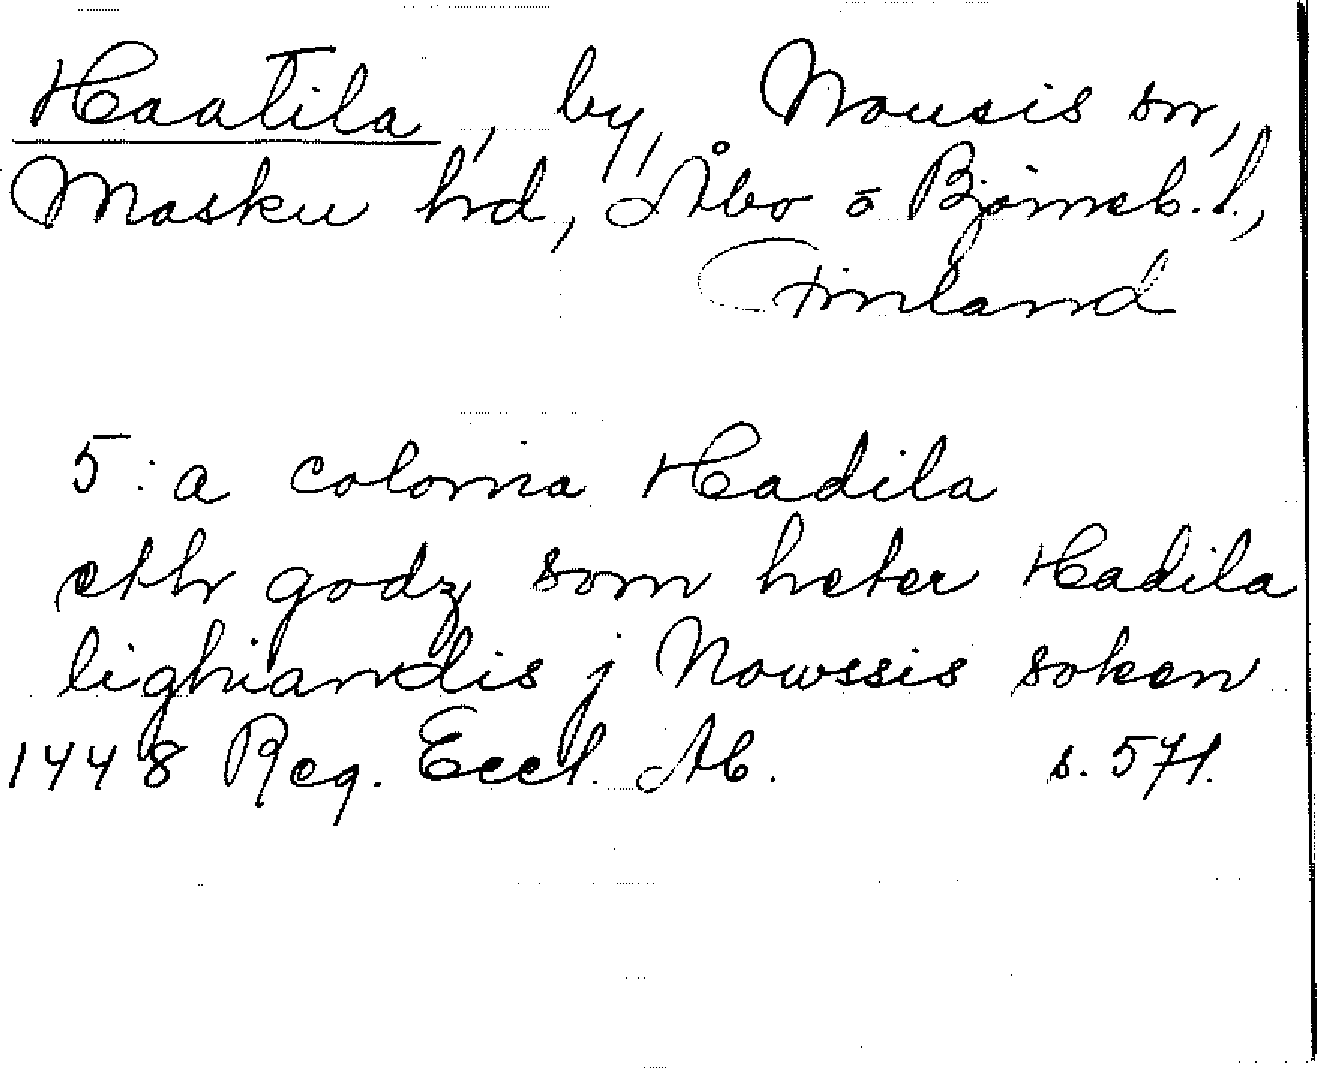 Haatila, by, Nousis sn,
Masku hd, Åbo o Björneb. l.,
Finland
5: a colonia Hadila
eth godz som heter Hadila
lighiandis j Nowssis soken
1448 Reg. Eccl. Ab. s. 571.